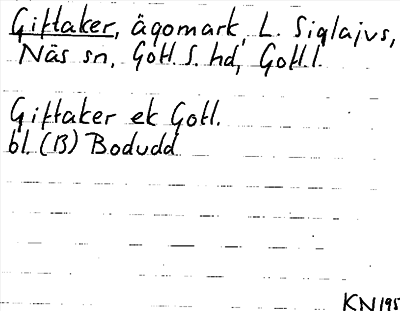 Giftaker, ägomark, L. Siglajvs,
Näs sn, Gotl. S. hd, Gotl. l.
Giftaker ek Gotl.
bl. (B) Bodudd
KN195